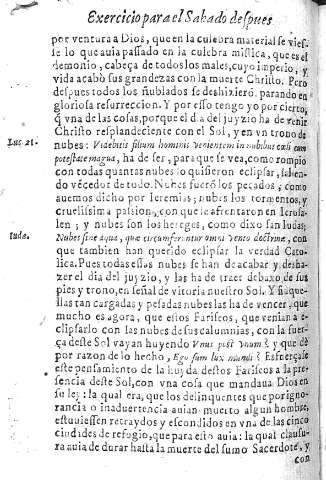 Exercicio para el Sabado despues
por ventura a Dios, que en la culebra material se vies-
se lo que auia passado en la culebra mistica, que es el
demonio, cabeça de todos los males, cuyo imperio, y
vida acabò sus grandezas con la muerte Christo. Pero
despues todos los ñublados se deshizierō. parando en
gloriosa resurreccion. Y por esso tengo yo por cierto,
q̄ vna de las cosas, porque el dia del juyzio ha de venir
Christo resplandeciente con el Sol, y en vn trono de
Luc. 21. nubes: Videbitis filium hominis venientem in nubibus cæli cum
potestate magna, ha de ser, para que se vea, como rompio
con todas quantas nubes lo quisieron eclipsar, salien-
do vēcedor de todo. Nubes fuerō los pecados, como
auemos dicho por Ieremias; nubes los tormentos, y
cruelissima passion, con que le afrentaron en Ierusa-
len; y nubes son los hereges, como dixo san Iudas;
Iudæ. Nubes sine aqua, quæ circumferuntur omni vento doctrinæ, con
que tambien han querido eclipsar la verdad Cato-
lica. Pues todas essas nubes se han de acabar y desha-
zer el dia del juyzio, y las ha de traer debaxo de sus
pies y trono, en señal de vitoria nuestro Sol. Y si aque-
llas tan cargadas y pesadas nubes las ha de vencer, que
mucho es agora, que estos Fariseos, que venian a e-
clipsarlo con las nubes de sus calumnias, con la fuer-
ça deste Sol vayan huyendo Vnus post vnum? y que dè
por razon de lo hecho, Ego sum lux mundi? Esfuerçase
este pensamiento de la huyda destos Fariseos a la pre-
sencia deste Sol, con vna cosa que mandaua Dios en
su ley: la qual era, que los delinquentes que por igno-
rancia o inaduertencia auian muerto algun hombre,
estuuiessen retraydos y escondidos en vna de las cinco
ciudades de refugio, que para esto auia: la qual clausu-
ra auia de durar hasta la muerte del sumo Sacerdote, y
con